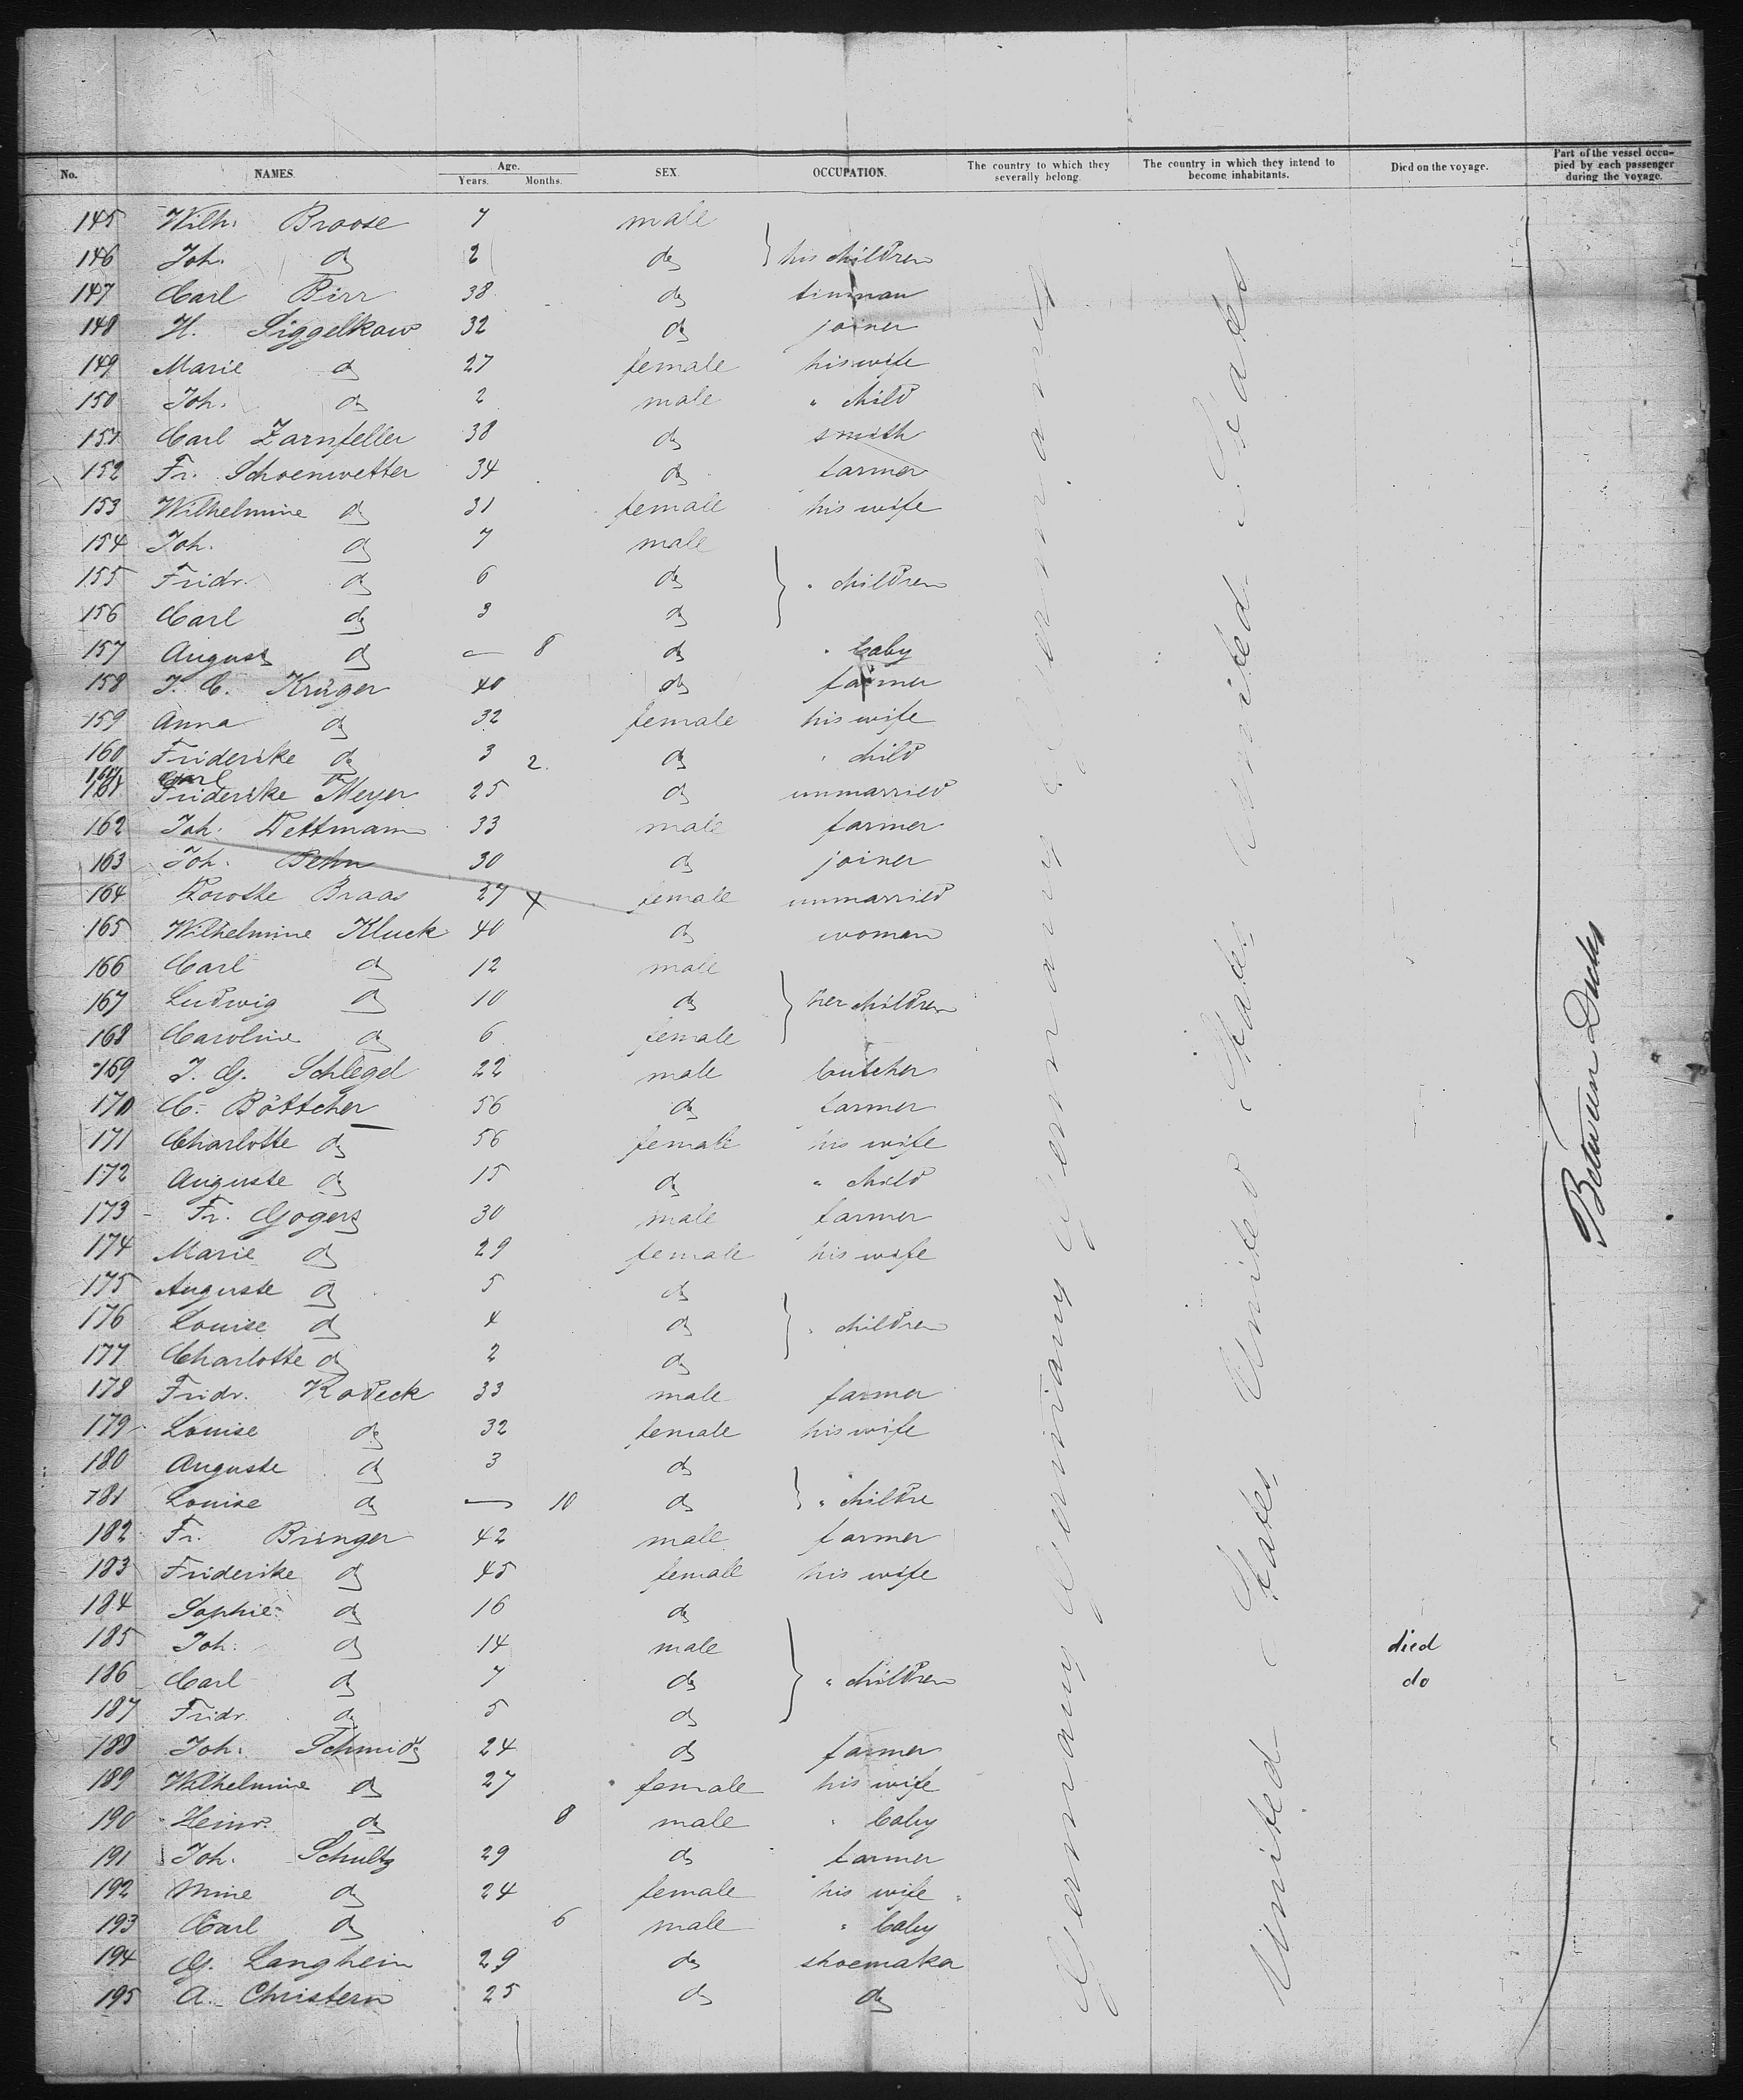 No. NAMES. Age. Years. Months. SEX. OCCUPATION. The country to which they severally belong. The country in which they intend to become inhabitants. Died on the voyage. Part of the vessel occupied by each passenger during the voyage.
145 Wilh. Broose 7 male
146 Joh. do 2 do } his children
147 Carl Birr 38 do
148 H. Siggelkow 32 do joiner
149 Marie do 27 female his wife
150 Joh. do 2 male " child
151 Carl Zarnfeller 38 do smith
152 Fr. Schoenwetter 34 do farmer
153 Wilhelmine do 31 female his wife
154 Joh. do 7 male
155 Fridr. do 6 do } " children
156 Carl do 3 do
157 August do — 8 do " baby
158 J. C. Krüger 40 do farmer
159 Anna do 32 female his wife
160 Friderike do 3 2 do " child
161 Carl do
161 Friderike Meyer 25 do unmarried
162 Joh. Dettmann 33 male farmer
163 Joh. Behn 30 do joiner
164 Dorothe Braas 27 x female unmarried
165 Wilhelmine Kluck 40 do woman
166 Carl do 12 male
167 Ludwig do 10 do } her children
168 Caroline do 6 female
169 J. G. Schlegel 22 male butcher
170 C. Böttcher 56 do farmer
171 Charlotte do 56 female his wife
172 Auguste do 15 do " child
173 Fr. Gogers 30 male farmer
174 Marie do 29 female his wife
175 Auguste do 5 do
176 Louise do 4 do } " children
177 Charlotte do 2 do
178 Fridr. Radeck 33 male farmer
179 Louise do 32 female his wife
180 Auguste do 3 do
181 Louise do — 10 do } " childre
182 Fr. Bringer 42 male farmer
183 Friderike do 45 female his wife
184 Sophie do 16 do
185 Joh. do 14 male died
186 Carl do 7 do } " children do
187 Fridr. do 5 do
188 Joh. Schmidt 24 do farmer
189 Wilhelmine do 27 female his wife
190 Heinr. do 8 male " baby
191 Joh. Schultz 29 do farmer
192 Mine do 24 female his wife
193 Carl do 6 male " baby
194 G. Langhein 29 do shoemaker
195 A. Christern 25 do do
Germany Germany Germany Germany
United States United States United States
Between Decks